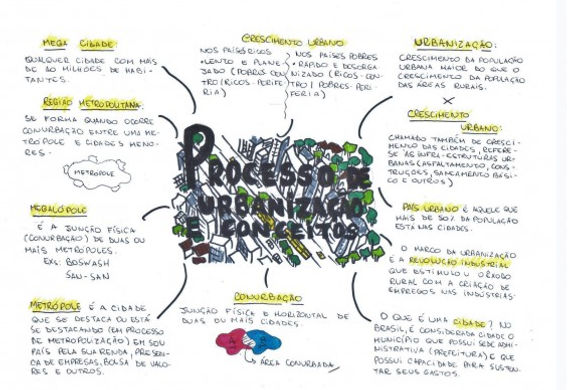 MEGA CIDADE:
QUALQUER CIDADE COM MAIS
DE 10 MILHÕES DE HABI-
TANTES.
REGIÃO METROPOLITANA:
SE FORMA QUANDO OCORRE
CONURBAÇÃO ENTRE UMA ME-
TRÓPOLE E CIDADES MENO-
RES.
METRÓPOLE
MEGALÓPOLE
É A JUNÇÃO FÍSICA
(CONURBAÇÃO) DE DUAS OU
MAIS METRÓPOLES.
EXS: BOSWASH
SAN-SAN
METRÓPOLE É A CIDADE
QUE SE DESTACA OU ESTÁ
SE DESTACANDO (EM PROCESSO
DE METROPOLIZAÇÃO) EM SEU
PAÍS PELA SUA RENDA, PRESEN-
ÇA DE EMPRESAS, BOLSA DE VALO-
RES E OUTROS.
CRESCIMENTO URBANO
NOS PAÍSES RICOS
•LENTO E PLANE-
JADO (POBRES CEN
TRO/RICOS PERIFE-
RIA)
NOS PAÍSES POBRES
•RÁPIDO E DESORGA
NIZADO (RICOS-CEN-
TRO/POBRES-PERI-
FERIA)
PROCESSO DE
URBANIZAÇÃO
E CONCEITOS
CONURBAÇÃO
JUNÇÃO FÍSICA E HORIZONTAL DE
DUAS OU MAIS CIDADES.
ÁREA CONURBADA
URBANIZAÇÃO:
CRESCIMENTO DA POPULAÇÃO
URBANA MAIOR DO QUE O
CRESCIMENTO DA POPULAÇÃO
DAS ÁREAS RURAIS.
X
CRESCIMENTO
URBANO:
CHAMADO TAMBÉM DE CRESCI-
MENTO DAS CIDADES, REFERE-
SE ÀS INFRA-ESTRUTURAS UR-
BANAS (ASFALTAMENTO, CONS-
TRUÇÕES, SANEAMENTO BÁSI-
CO E OUTROS)
PAÍS URBANO É AQUELE QUE
MAIS DE 50% DA POPULAÇÃO
ESTÁ NAS CIDADES.
O MARCO DA URBANIZAÇÃO
É A REVOLUÇÃO INDUSTRIAL
QUE ESTIMULOU O ÊXODO
RURAL COM A CRIAÇÃO DE
EMPREGOS NAS INDÚSTRIAS.
O QUE É UMA CIDADE? NO
BRASIL, É CONSIDERADA CIDADE O
MUNICÍPIO QUE POSSUI SEDE ADMI-
NISTRATIVA (PREFEITURA) E QUE
POSSUI CAPACIDADE PARA SUSTEN-
TAR SEUS GASTOS.